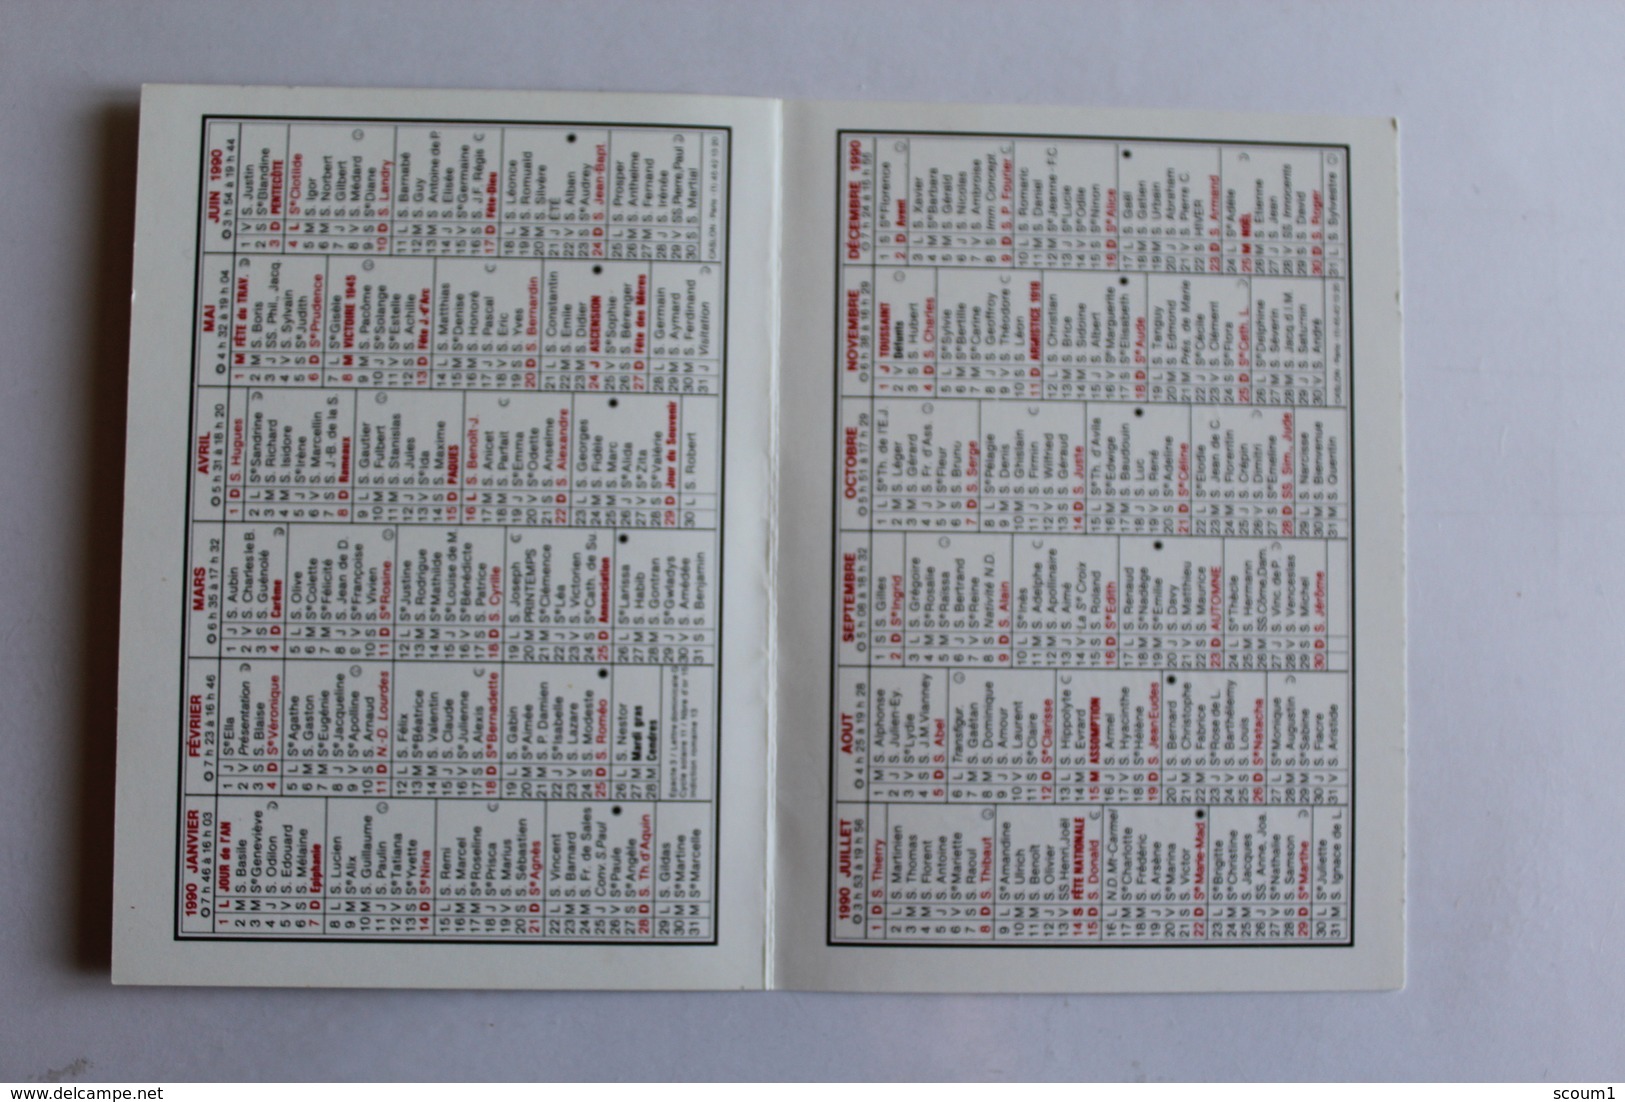 1990 JANVIER
7 h 46 à 16 h 03
1 L JOUR de l'AN
2 M S. Basile
3 M Sᵉ Geneviève
4 J S. Odilon
5 V S. Edouard
6 S S. Mélaine
7 D Epiphanie
8 L S. Lucien
9 M Sᵉ Alix
10 M S. Guillaume
11 J S. Paulin
12 V Sᵉ Tatiana
13 S Sᵉ Yvette
14 D Sᵉ Nina
15 L S. Remi
16 M S. Marcel
17 M Sᵉ Roseline
18 J Sᵉ Prisca
19 V S. Marius
20 S S. Sébastien
21 D Sᵉ Agnès
22 L S. Vincent
23 M S. Barnard
24 M S. Fr. de Sales
25 J Conv. S. Paul
26 V Sᵉ Paule
27 S Sᵉ Angèle
28 D S. Th. d'Aquin
29 L S. Gildas
30 M Sᵉ Martine
31 M Sᵉ Marcelle
FÉVRIER
7 h 23 à 16 h 46
1 J Sᵉ Ella
2 V Présentation
3 S S. Blaise
4 D Sᵉ Véronique
5 L Sᵉ Agathe
6 M S. Gaston
7 M Sᵉ Eugénie
8 J Sᵉ Jacqueline
9 V Sᵉ Apolline
10 S S. Arnaud
11 D N.-D. Lourdes
12 L S. Félix
13 M Sᵉ Béatrice
14 M S. Valentin
15 J S. Claude
16 V Sᵉ Julienne
17 S S. Alexis
18 D Sᵉ Bernadette
19 L S. Gabin
20 M Sᵉ Aimée
21 M S. P. Damien
22 J Sᵉ Isabelle
23 V S. Lazare
24 S S. Modeste
25 D S. Roméo
26 L S. Nestor
27 M Mardi gras
28 M Cendres
MARS
6 h 35 à 17 h 32
1 J S. Aubin
2 V S. Charles le B.
3 S S. Guénolé
4 D Carême
5 L S. Olive
6 M Sᵉ Colette
7 M Sᵉ Félicité
8 J S. Jean de D.
9 V Sᵉ Françoise
10 S S. Vivien
11 D Sᵉ Rosine
12 L Sᵉ Justine
13 M S. Rodrigue
14 M Sᵉ Mathilde
15 J Sᵉ Louise de M.
16 V Sᵉ Bénédicte
17 S S. Patrice
18 D S. Cyrille
19 L S. Joseph
20 M PRINTEMPS
21 M Sᵉ Clémence
22 J Sᵉ Léa
23 V S. Victorien
24 S Sᵉ Cath. de Su.
25 D Annonciation
26 L Sᵉ Larissa
27 M S. Habib
28 M S. Gontran
29 J Sᵉ Gwladys
30 V S. Amédée
31 S S. Benjamin
AVRIL
5 h 31 à 18 h 20
1 D S. Hugues
2 L Sᵉ Sandrine
3 M S. Richard
4 M S. Isidore
5 J Sᵉ Irène
6 V S. Marcellin
7 S S. J.-B. de la S.
8 D Rameaux
9 L S. Gautier
10 M S. Fulbert
11 M S. Stanislas
12 J S. Jules
13 V Sᵉ Ida
14 S S. Maxime
15 D PAQUES
16 L S. Benoît-J.
17 M S. Anicet
18 M S. Parfait
19 J Sᵉ Emma
20 V Sᵉ Odette
21 S S. Anselme
22 D S. Alexandre
23 L S. Georges
24 M S. Fidèle
25 M S. Marc
26 J Sᵉ Alida
27 V Sᵉ Zita
28 S Sᵉ Valérie
29 D Jour du Souvenir
30 L S. Robert
MAI
4 h 32 à 19 h 04
1 M FÊTE du TRAV.
2 M S. Boris
3 J SS. Phil., Jacq.
4 V S. Sylvain
5 S Sᵉ Judith
6 D Sᵉ Prudence
7 L Sᵉ Gisèle
8 M VICTOIRE 1945
9 M S. Pacôme
10 J Sᵉ Solange
11 V Sᵉ Estelle
12 S S. Achille
13 D Fête J.-d'Arc
14 L S. Matthias
15 M Sᵉ Denise
16 M S. Honoré
17 J S. Pascal
18 V S. Eric
19 S S. Yves
20 D S. Bernardin
21 L S. Constantin
22 M S. Emile
23 M S. Didier
24 J ASCENSION
25 V Sᵉ Sophie
26 S S. Bérenger
27 D Fête des Mères
28 L S. Germain
29 M S. Aymard
30 M S. Ferdinand
31 J Visitation
JUIN 1990
3 h 54 à 19 h 44
1 V S. Justin
2 S Sᵉ Blandine
3 D PENTECÔTE
4 L Sᵉ Clotilde
5 M S. Igor
6 M S. Norbert
7 J S. Gilbert
8 V S. Médard
9 S Sᵉ Diane
10 D S. Landry
11 L S. Barnabé
12 M S. Guy
13 M S. Antoine de P.
14 J S. Elisée
15 V Sᵉ Germaine
16 S S. J.F. Régis
17 D Fête-Dieu
18 L S. Léonce
19 M S. Romuald
20 M S. Silvère
21 J ÉTÉ
22 V S. Alban
23 S Sᵉ Audrey
24 D S. Jean-Bapt
25 L S. Prosper
26 M S. Anthelme
27 M S. Fernand
28 J S. Irénée
29 V SS. Pierre, Paul
30 S S. Martial
1990 JUILLET
3 h 53 à 19 h 56
1 D S. Thierry
2 L S. Martinien
3 M S. Thomas
4 M S. Florent
5 J S. Antoine
6 V Sᵉ Mariette
7 S S. Raoul
8 D S. Thibaut
9 L Sᵉ Amandine
10 M S. Ulrich
11 M S. Benoît
12 J S. Olivier
13 V SS Henri, Joël
14 S FÊTE NATIONALE
15 D S. Donald
16 L N.D. Mt-Carmel
17 M Sᵉ Charlotte
18 M S. Frédéric
19 J S. Arsène
20 V Sᵉ Marina
21 S S. Victor
22 D Sᵉ Marie-Mad.
23 L Sᵉ Brigitte
24 M Sᵉ Christine
25 M S. Jacques
26 J SS. Anne, Joa.
27 V Sᵉ Nathalie
28 S S. Samson
29 D Sᵉ Marthe
30 L Sᵉ Juliette
31 M S. Ignace de L.
AOUT
4 h 25 à 19 h 28
1 M S. Alphonse
2 J S. Julien-Ey.
3 V Sᵉ Lydie
4 S S. J.M. Vianney
5 D S. Abel
6 L Transfigur.
7 M S. Gaétan
8 M S. Dominique
9 J S. Amour
10 V S. Laurent
11 S Sᵉ Claire
12 D Sᵉ Clarisse
13 L S. Hippolyte
14 M S. Evrard
15 M ASSOMPTION
16 J S. Armel
17 V S. Hyacinthe
18 S Sᵉ Hélène
19 D S. Jean Eudes
20 L S. Bernard
21 M S. Christophe
22 M S. Fabrice
23 J Sᵉ Rose de L.
24 V S. Barthélemy
25 S S. Louis
26 D Sᵉ Natacha
27 L Sᵉ Monique
28 M S. Augustin
29 M Sᵉ Sabine
30 J S. Fiacre
31 V S. Aristide
SEPTEMBRE
5 h 08 à 18 h 32
1 S S. Gilles
2 D Sᵉ Ingrid
3 L S. Grégoire
4 M Sᵉ Rosalie
5 M Sᵉ Raïssa
6 J S. Bertrand
7 V Sᵉ Reine
8 S Nativité N.D.
9 D S. Alain
10 L Sᵉ Inès
11 M S. Adelphe
12 M S. Apollinaire
13 J S. Aimé
14 V La Sᵉ Croix
15 S S. Roland
16 D Sᵉ Edith
17 L S. Renaud
18 M Sᵉ Nadège
19 M Sᵉ Emilie
20 J S. Davy
21 V S. Matthieu
22 S S. Maurice
23 D AUTOMNE
24 L Sᵉ Thècle
25 M S. Hermann
26 M SS. Côme, Dam.
27 J S. Vinc. de P.
28 V S. Venceslas
29 S S. Michel
30 D S. Jérôme
OCTOBRE
5 h 51 à 17 h 29
1 L Sᵉ Th. de l'E.J.
2 M S. Léger
3 M S. Gérard
4 J S. Fr. d'Ass.
5 V Sᵉ Fleur
6 S S. Bruno
7 D S. Serge
8 L Sᵉ Pélagie
9 M S. Denis
10 M S. Ghislain
11 J S. Firmin
12 V S. Wilfried
13 S S. Géraud
14 D S. Juste
15 L Sᵉ Th. d'Avila
16 M Sᵉ Edwige
17 M S. Baudouin
18 J S. Luc
19 V S. René
20 S Sᵉ Adeline
21 D Sᵉ Céline
22 L Sᵉ Elodie
23 M S. Jean de C.
24 M S. Florentin
25 J S. Crépin
26 V S. Dimitri
27 S Sᵉ Emeline
28 D SS. Sim, Jude
29 L S. Narcisse
30 M S. Bienvenue
31 M S. Quentin
NOVEMBRE
6 h 38 à 16 h 29
1 J TOUSSAINT
2 V Défunts
3 S S. Hubert
4 D S. Charles
5 L Sᵉ Sylvie
6 M Sᵉ Bertille
7 M Sᵉ Carine
8 J S. Geoffroy
9 V S. Théodore
10 S S. Léon
11 D ARMISTICE 1918
12 L S. Christian
13 M S. Brice
14 M S. Sidoine
15 J S. Albert
16 V Sᵉ Marguerite
17 S Sᵉ Elisabeth
18 D Sᵉ Aude
19 L S. Tanguy
20 M S. Edmond
21 M Prés. de Marie
22 J Sᵉ Cécile
23 V S. Clément
24 S Sᵉ Flora
25 D Sᵉ Cath. L.
26 L Sᵉ Delphine
27 M S. Séverin
28 M S. Jacq. d.l.M.
29 J S. Saturnin
30 V S. André
DÉCEMBRE 1990
7 h 24 à 15 h 55
1 S Sᵉ Florence
2 D Avent
3 L S. Xavier
4 M Sᵉ Barbara
5 M S. Gérald
6 J S. Nicolas
7 V S. Ambroise
8 S Imm. Concept.
9 D S. P. Fourier
10 L S. Romaric
11 M S. Daniel
12 M Sᵉ Jeanne-F.C.
13 J Sᵉ Lucie
14 V Sᵉ Odile
15 S Sᵉ Ninon
16 D Sᵉ Alice
17 L S. Gaël
18 M S. Gatien
19 M S. Urbain
20 J S. Abraham
21 V S. Pierre C.
22 S HIVER
23 D S. Armand
24 L Sᵉ Adèle
25 M NOËL
26 M S. Etienne
27 J S. Jean
28 V SS Innocents
29 S S. David
30 D S. Roger
31 L S. Sylvestre
www.delcampe.net
scoum1